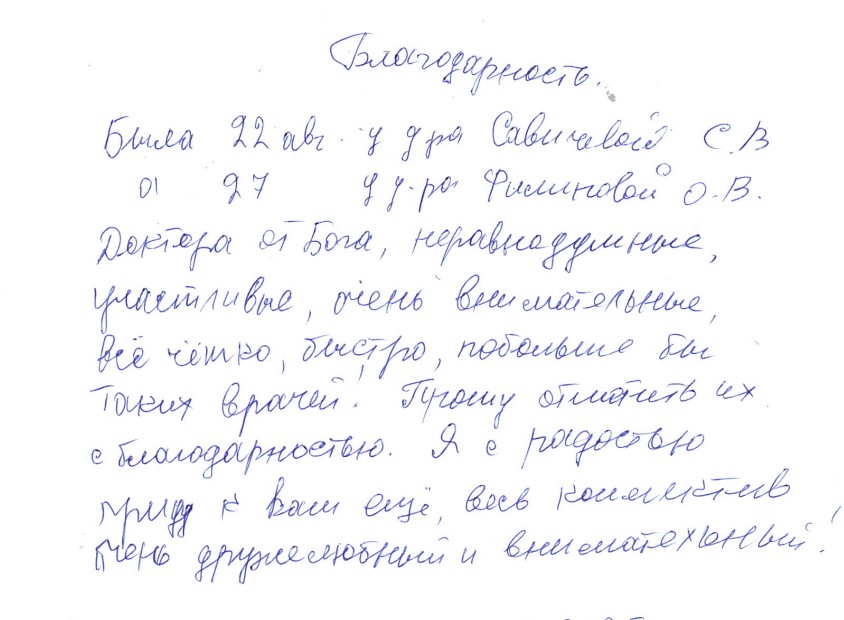 Благодарность.
Была 22 авг. у д-ра Савичевой С.В
а 27 у д-ра Филиновой О.В.
Доктора от Бога, неравнодумные,
участливые, очень внимательные,
всё чётко, быстро, побольше бы
таких врачей! Прошу отметить их
с благодарностью. Я с радостью
приду к вам ещё, весь коллектив
очень дружелюбный и внимательный!